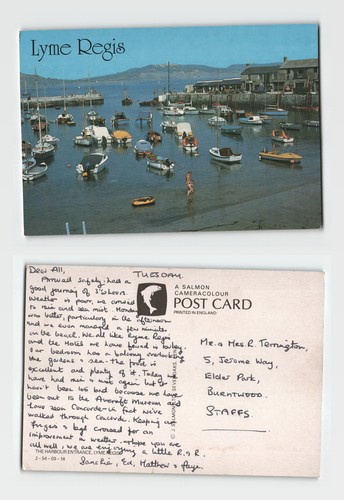 Lyme Regis
TUESDAY.
Dear All,
Arrived safely, had a
good journey of 3½ hours.
Weather is poor, we arrived
to rain and sea mist. Monday
was better, particularly in the afternoon
and we even managed a few minutes
on the beach. We all like Lyme Regis
and the Hotel we have found is lovely.
Our bedroom has a balcony overlooking
the gardens & sea. The food is
excellent and plenty of it. Today we
have had rain & mist again but it
hasn't been too bad because we have
been out to the Aircraft Museum and
have seen Concorde - in fact we've
walked through Concorde. Keeping our
fingers & legs crossed for an
improvement in weather. Hope you are
all well, we are enjoying a little R & R.
Sandra, Ed, Matthew &
A SALMON
CAMERACOLOUR
POST CARD
PRINTED IN ENGLAND
Mr. & Mrs R. Torrington,
5, Jerome Way,
Elder Park,
BURNTWOOD
STAFFS.
© J. SALMON SEVENOAKS
THE HARBOUR ENTRANCE, LYME REGIS
2-54-03-14